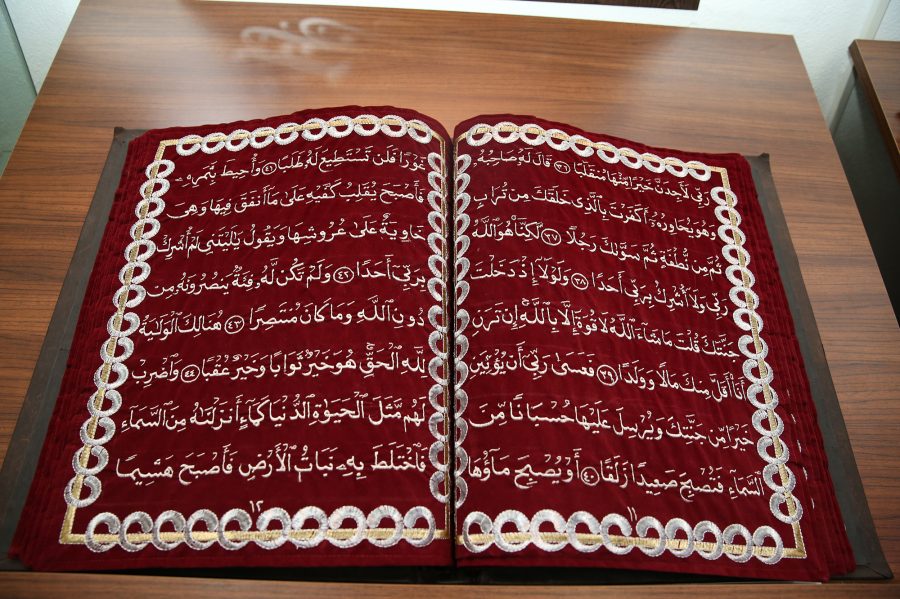 رَبِّي لَأَجِدَنَّ خَيْرًا مِّنْهَا مُنقَلَبًا ٣٦ قَالَ لَهُۥ صَاحِبُهُۥ
وَهُوَ يُحَاوِرُهُۥٓ أَكَفَرْتَ بِٱلَّذِى خَلَقَكَ مِن تُرَابٍ
ثُمَّ مِن نُّطْفَةٍ ثُمَّ سَوَّىٰكَ رَجُلًا ٣٧ لَّٰكِنَّا۠ هُوَ ٱللَّهُ
رَبِّى وَلَآ أُشْرِكُ بِرَبِّىٓ أَحَدًا ٣٨ وَلَوْلَآ إِذْ دَخَلْتَ
جَنَّتَكَ قُلْتَ مَا شَآءَ ٱللَّهُ لَا قُوَّةَ إِلَّا بِٱللَّهِ ۚ إِن تَرَنِ
أَنَا۠ أَقَلَّ مِنكَ مَالًا وَوَلَدًا ٣٩ فَعَسَىٰ رَبِّىٓ أَن يُؤْتِيَنِ
خَيْرًا مِّن جَنَّتِكَ وَيُرْسِلَ عَلَيْهَا حُسْبَانًا مِّنَ
ٱلسَّمَآءِ فَتُصْبِحَ صَعِيدًا زَلَقًا ٤٠ أَوْ يُصْبِحَ مَآؤُهَا
١١
غَوْرًا فَلَن تَسْتَطِيعَ لَهُۥ طَلَبًا ٤١ وَأُحِيطَ بِثَمَرِهِۦ
فَأَصْبَحَ يُقَلِّبُ كَفَّيْهِ عَلَىٰ مَآ أَنفَقَ فِيهَا وَهِىَ
خَاوِيَةٌ عَلَىٰ عُرُوشِهَا وَيَقُولُ يَٰلَيْتَنِى لَمْ أُشْرِكْ
بِرَبِّىٓ أَحَدًا ٤٢ وَلَمْ تَكُن لَّهُۥ فِئَةٌ يَنصُرُونَهُۥ مِن
دُونِ ٱللَّهِ وَمَا كَانَ مُنتَصِرًا ٤٣ هُنَالِكَ ٱلْوَلَٰيَةُ
لِلَّهِ ٱلْحَقِّ ۚ هُوَ خَيْرٌ ثَوَابًا وَخَيْرٌ عُقْبًا ٤٤ وَٱضْرِبْ
لَهُم مَّثَلَ ٱلْحَيَوٰةِ ٱلدُّنْيَا كَمَآءٍ أَنزَلْنَٰهُ مِنَ ٱلسَّمَآءِ
فَٱخْتَلَطَ بِهِۦ نَبَاتُ ٱلْأَرْضِ فَأَصْبَحَ هَشِيمًا
١٢